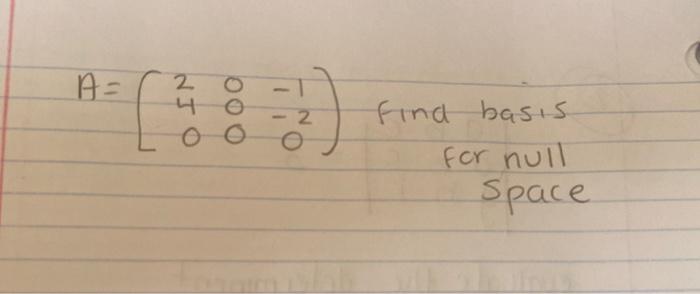 A = ( 2 0 -1
4 0 -2
0 0 0 ) Find basis
for null
space